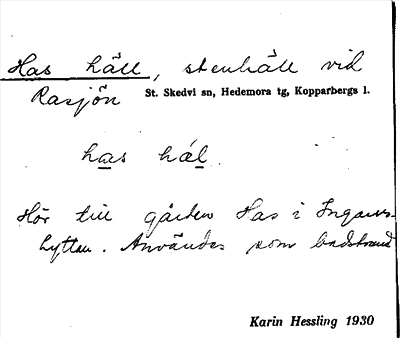 Has häll, stenhäll vid
Rasjön St. Skedvi sn, Hedemora tg, Kopparbergs l.
has hál.
Hör till gården Has i Ingarvs-
hyttan. Användes som badstrand
Karin Hessling 1930